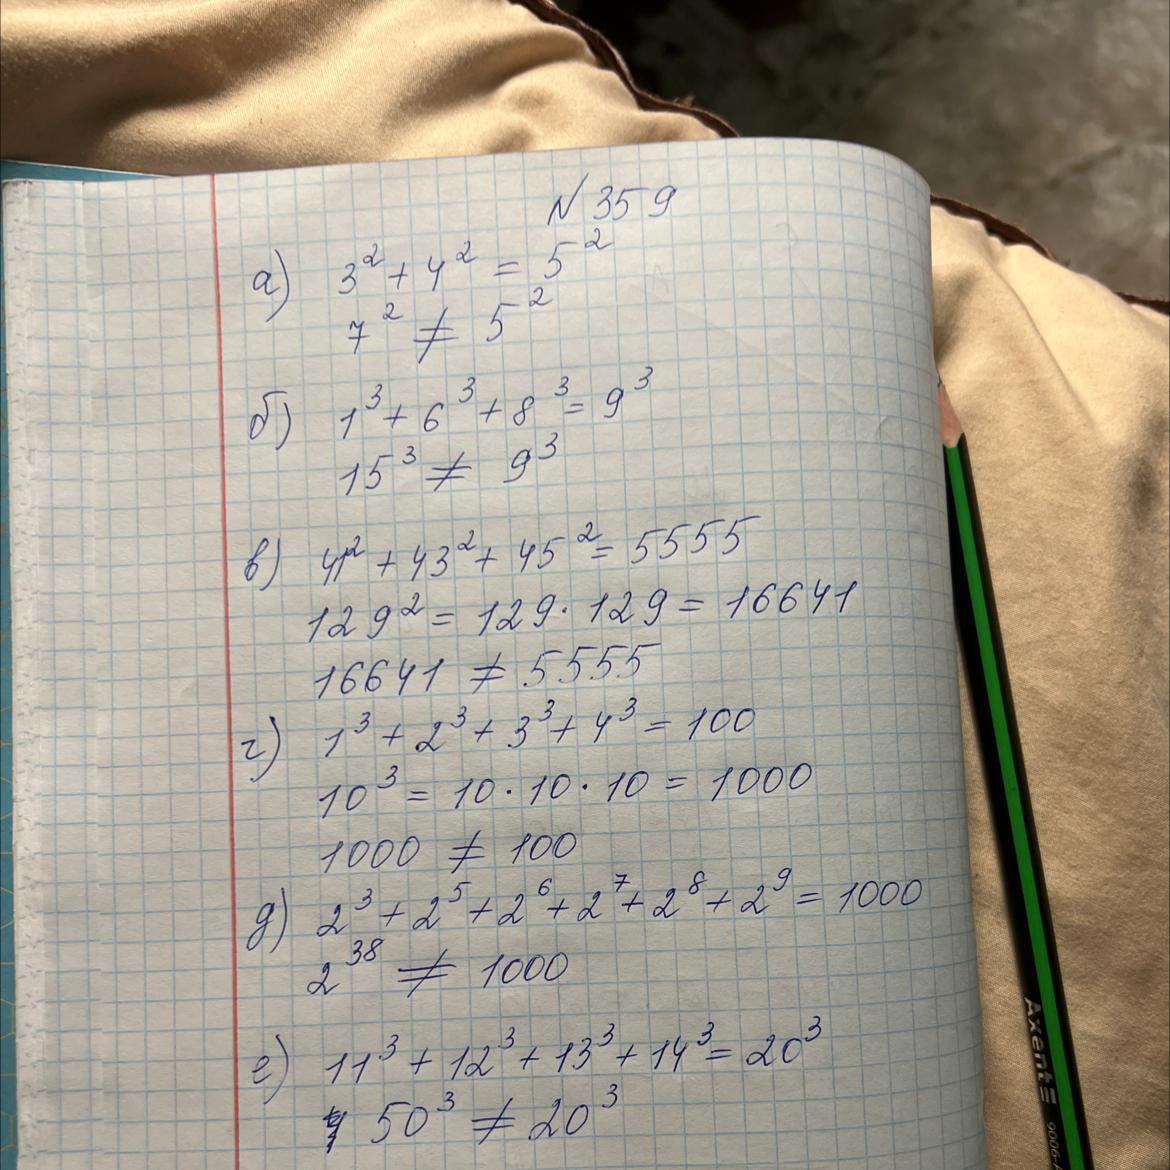 N 359
а) 3² + 4² = 5²
7² ≠ 5²
б) 1³ + 6³ + 8³ = 9³
15³ ≠ 9³
в) 41² + 43² + 45² = 5555
129² = 129 · 129 = 16641
16641 ≠ 5555
г) 1³ + 2³ + 3³ + 4³ = 100
10³ = 10 · 10 · 10 = 1000
1000 ≠ 100
д) 2³ + 2⁵ + 2⁶ + 2⁷ + 2⁸ + 2⁹ = 1000
2³⁸ ≠ 1000
е) 11³ + 12³ + 13³ + 14³ = 20³
50³ ≠ 20³
Axent